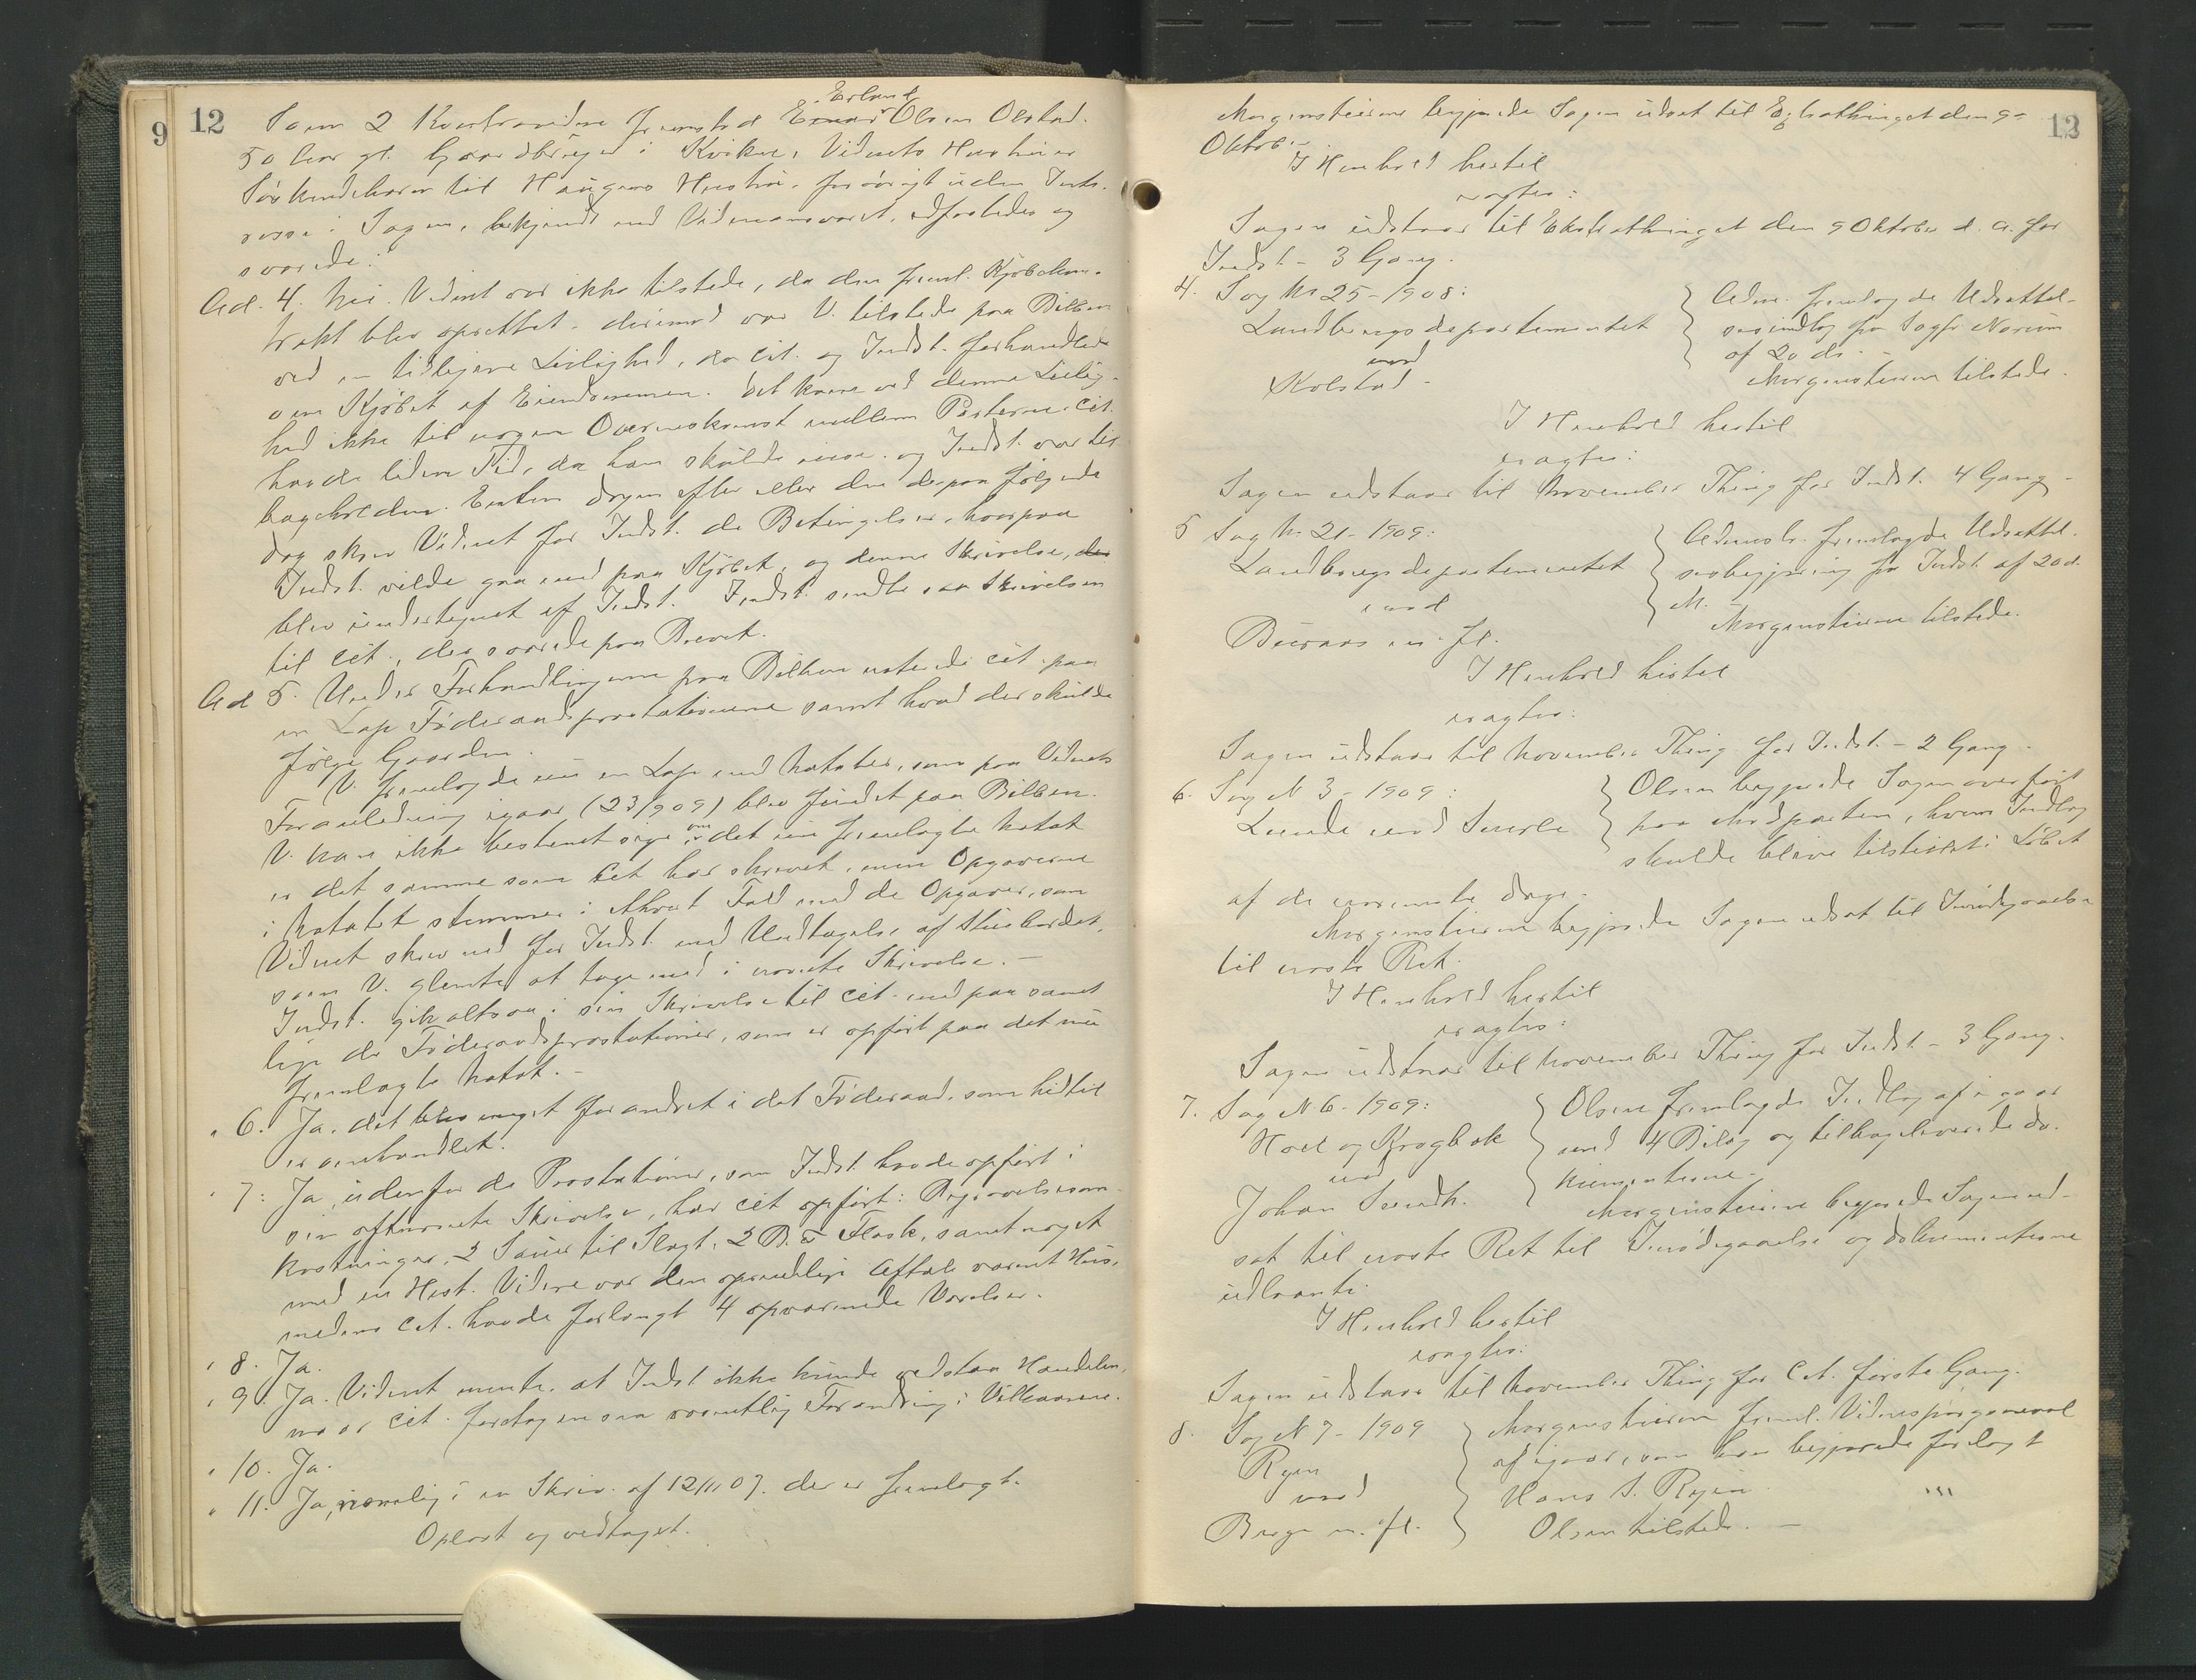 9
12
Som 2 Kontravidne fremstod Einar Erland Olsen Olstad.
50 Aar gl. Gaardbruger i Kvikne, Vidnets Hustru er
Søskendebarn til Haugens Hustru, forøvrigt uden Inte-
resse i Sagen, bekjendt med Vidneansvaret, edfæstedes og
svarede:
Ad. 4. Nei. Vidnet var ikke tilstede, da den freml. Kjøbekon-
trakt blev oprettet, derimod var V. tilstede paa Bilben
ved en tidligere Leilighed, da Cit. og Indst. forhandlede
om Kjøbet af Eiendommen. Det kom ved denne Leilig-
hed ikke til nogen Overenskomst mellem Parterne. Cit.
havde liden Tid, da han skulde reise og Indst. var til-
bageholden. Enten Dagen efter eller den derpaa følgende
Dag skrev Vidnet for Indst. de Betingelser, hvorpaa
Indst. vilde gaa med paa Kjøbet, og denne Skrivelse, der
blev undertegnet af Indst. Indst. sendte saa Skrivelsen
til Cit., der svarede paa Brevet.
Ad 5. Under Forhandlingerne paa Bilben noterede Cit. paa
en Lap Føderaadsprestationerne samt hvad der skulde
følge Gaarden.
V. fremlagde nu en Lap med Notater, som paa Vidnets
Foranledning igaar (23/9 09) blev fundet paa Bilben.
V. kan ikke bestemt sige om det nu fremlagte Notat
er det samme som Cit har skrevet, men Opgaverne
i Notatet stemmer i ethvert Fald med de Opgaver, som
Vidnet skrev ned for Indst. med Undtagelse af Stuebordet,
som V. glemte at tage med i nævnte Skrivelse. -
Indst. gik altsaa i sin Skrivelse til Cit. med paa samt-
lige de Føderaadsprestationer, som er opført paa det nu
fremlagte Notat. -
" 6. Ja, det blev meget forandret i det Føderaad, som hidtil
er omhandlet.
" 7: Ja, udenfor de Prestationer, som Indst. havde opført i
sin oftnævnte Skrivelse, har Cit opført: Begravelsesom-
kostninger, 2 Sauer til Slagt, 2 B. ℔ Flesk, samt noget
med en Hest. Videre var den oprindelige Aftale varmt Hus,
medens Cit. havde forlangt 4 opvarmede Værelser.
" 8. Ja.
" 9. Ja. Vidnet mente, at Indst ikke kunde vedstaa Handelen,
naar Cit. foretog en saa væsentlig Forandring i Vilkaarene.
" 10. Ja.
" 11. Ja, nemlig i en Skriv. af 12/11 07. der er fremlagt.
Oplæst og vedtaget.
13
Morgenstierne begjærede Sagen udsat til Extrathinget den 9de
Oktober.
I Henhold hertil
eragtes:
Sagen udstaar til Ekstrathinget den 9 Oktober d. A. for
Indst. - 3 Gang.
4. Sag Nr 25 - 1908:
Landbrugsdepartementet
mod
Kolstad -
Adm. fremlagde Udsættel-
sesindlæg fra Sagfr. Norum
af 20 ds. -
Morgenstierne tilstede.
I Henhold hertil
eragtes:
Sagen udstaar til November Thing for Indst. 4 Gang -
5 Sag Nr. 21 - 1909:
Landbrugsdepartementet
mod
Buraas m. fl.
Adminstr. fremlagde Udsættel-
sesbegjæring fra Indst. af 20 d.
M.
Morgenstierne tilstede.
I Henhold hertil
eragtes:
Sagen udstaar til November Thing for Indst. - 2 Gang.
6. Sag N 3 - 1909:
Lunde mod Sverle
Olsen begjærede Sagen overført
paa Modparten, hvem Indlæg
skulde blive tilstillet i Løbet
af de nærmeste Dage.
Morgenstierne begjærede Sagen udsat til Imødegaaelse
til næste Ret.
I Henhold hertil
eragtes:
Sagen udstaar til November Thing for Indst. - 3 Gang.
7. Sag N 6 - 1909:
Hoel og Krogbæk
mod
Johan Sundt.
Olsen fremlagde Indlæg af igaar
med 4 Bilag og tilbageleverede do-
kumenterne.
Morgenstierne begjærede Sagen ud-
sat til næste Ret til Imødegaaelse og Dokumenterne
udlaant.
I Henhold hertil
eragtes:
Sagen udstaar til November Thing for Cit. første Gang.
8. Sag N 7 - 1909
Ryen
mod
Berge m. fl.
Morgenstierne freml. Vidnespørgsmaal
af igaar, som han begjærede forelagt
Hans S. Ryen.
Olsen tilstede. -